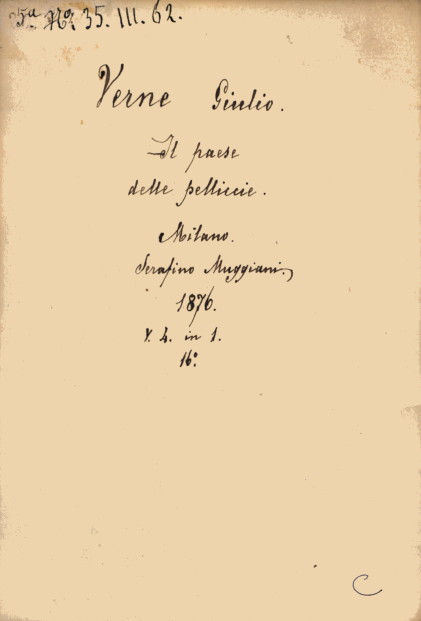 5a No. 35. III. 62.
Verne Giulio.
Il paese
delle pelliccie.
Milano.
Serafino Muggiani.
1876.
V. 4. in 1.
16o.
C